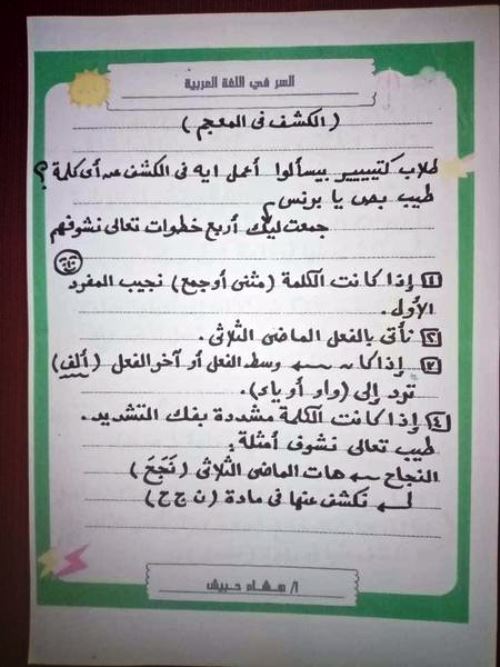 السر في اللغة العربية
(الكشف فى المعجم)
طلاب كتيييير بيسألوا أعمل ايه فى الكشف عن أى كلمة ؟
طيب بص يا برنس
جمعت ليك أربع خطوات تعالى نشوفهم
١ إذا كانت الكلمة (مثنى أو جمع) نجيب المفرد
الأول.
٢ نأتى بالفعل الماضى الثلاثى.
٣ إذا كان وسط الفعل أو آخر الفعل (ألف)
ترد إلى (واو أو ياء).
٤ إذا كانت الكلمة مشددة بفك التشديد.
طيب تعالى نشوف أمثلة:
النجاح ← هات الماضى الثلاثى (نَجَحَ)
نكشف عنها فى مادة (ن ج ح)
أ/ هشام حبيش